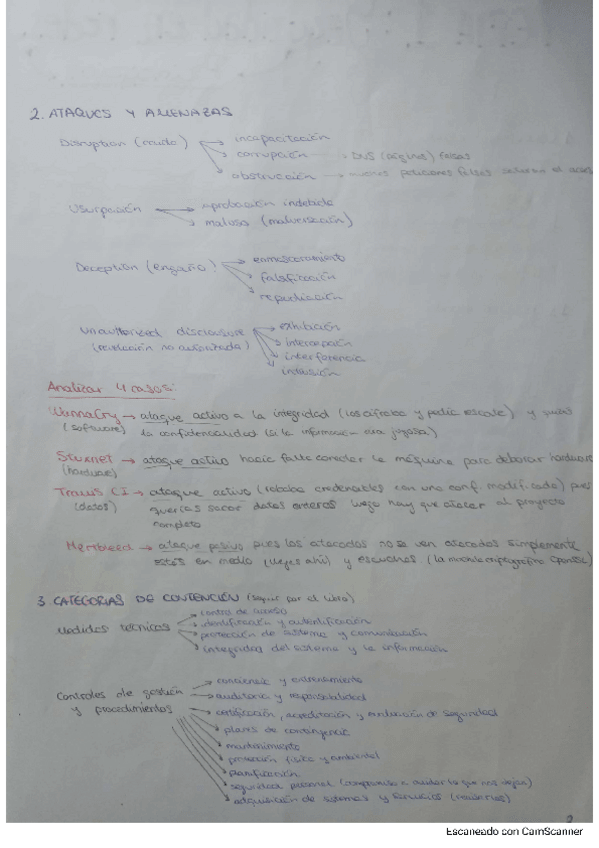 2. ATAQUES Y AMENAZAS
Disruption (ruido) → incapacitación
→ corrupción → DNS (páginas) falsas
→ obstrucción → peticiones falsas saturan el
Usurpación → apropiación indebida
→ maluso (malversación)
Deception (engaño) → enmascaramiento
→ falsificación
→ repudiación
Unauthorized disclousure → exhibición
(revelación no autorizada) → intercepción
→ interferencia
→ intrusión
Analizar 4 casos:
WannaCry → ataque activo a la integridad (los cifraba y pedía rescate) y
(software) la confidencialidad (si la información era)
Stuxnet → ataque activo hacía falta conectar la máquina para
(hardware)
Travis CI → ataque activo (robaba credenciales con una conf. modificada) pues
(datos) querías sacar datos luego hay que atacar al proyecto
completo
Hertbleed → ataque pasivo pues los atacados no se ven atacados simplemente
estás en medio (llegas ahí) y escuchas (la criptográfica OpenSSL)
3. CATEGORÍAS DE CONTENCIÓN (seguir por el libro)
Medidas técnicas → control de acceso
→ identificación y autentificación
→ protección de sistema y comunicación
→ integridad del sistema y la información
Controles de gestión → conciencia y entrenamiento
y procedimientos → auditoría y responsabilidad
→ certificación, acreditación y evaluación de seguridad
→ planes de contingencia
→ mantenimiento
→ protección física y ambiental
→ planificación
→ seguridad personal (compromiso a cuidar lo que nos dejan)
→ adquisición de sistemas y servicios
2
Escaneado con CamScanner